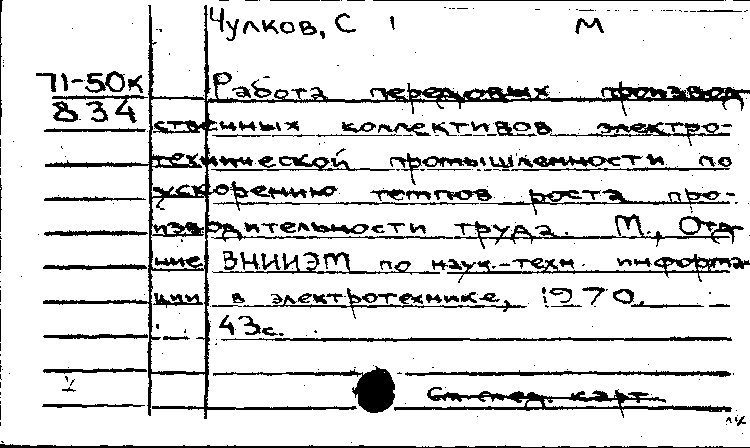 Чулков, С М
71-50к Работа передовых производ
834
ственных коллективов электро-
технической промышленности по
ускорению темпов роста про-
изводительности труда. М., Отд-
ние ВНИИЭМ по наук.-техн. информа-
ции в электротехнике, 1970.
43с.
См след. карт.